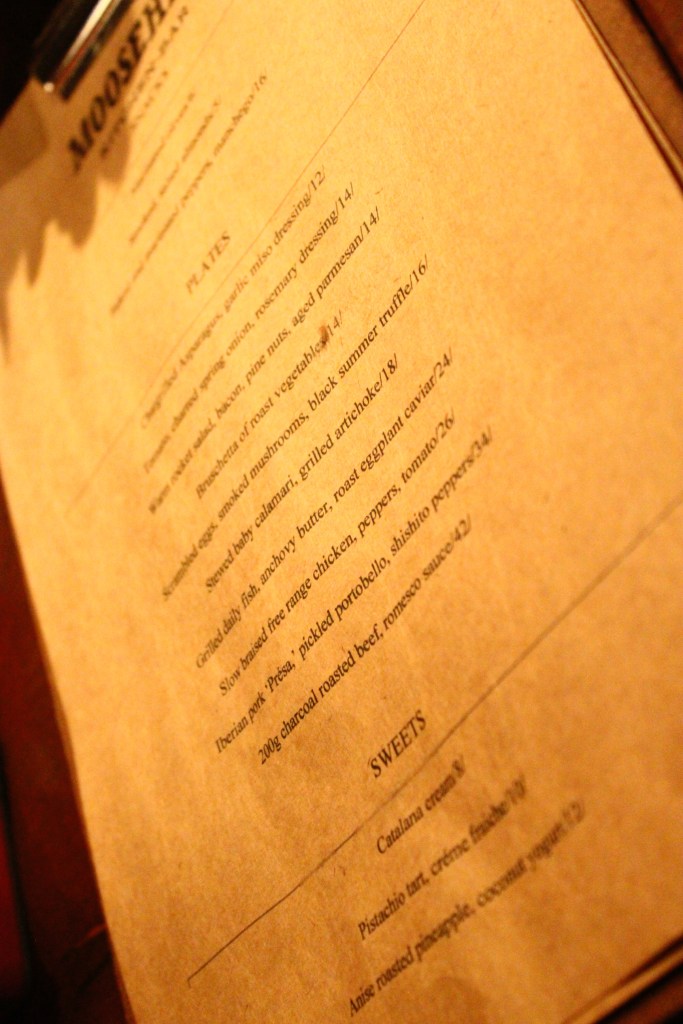 MOOSEH
KITCHEN-BAR
PLATES
Chargrilled Asparagus, garlic miso dressing/12/
Tomato, charred spring onion, rosemary dressing/14/
Warm rocket salad, bacon, pine nuts, aged parmesan/14/
Bruschetta of roast vegetables/14/
Scrambled eggs, smoked mushrooms, black summer truffle/16/
Stewed baby calamari, grilled artichoke/18/
Grilled daily fish, anchovy butter, roast eggplant caviar/24/
Slow braised free range chicken, peppers, tomato/26/
Iberian pork 'Présa,' pickled portobello, shishito peppers/34/
200g charcoal roasted beef, romesco sauce/42/
SWEETS
Catalana cream/8/
Pistachio tart, créme fraiche/10/
Anise roasted pineapple, coconut yogurt/12/